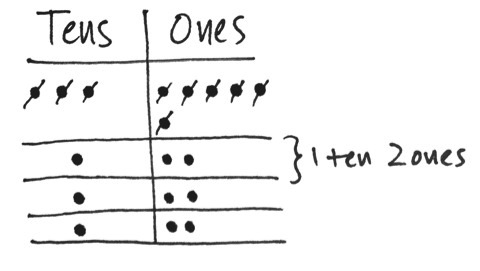 Tens Ones
1 ten 2 ones